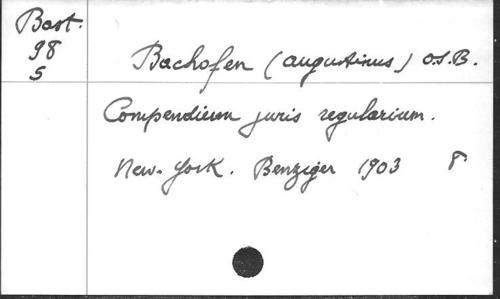 Bast.
98
5
Bachofen (Augustinus) O.S.B.
Compendium juris regularium.
New-York. Benziger 1903 8°